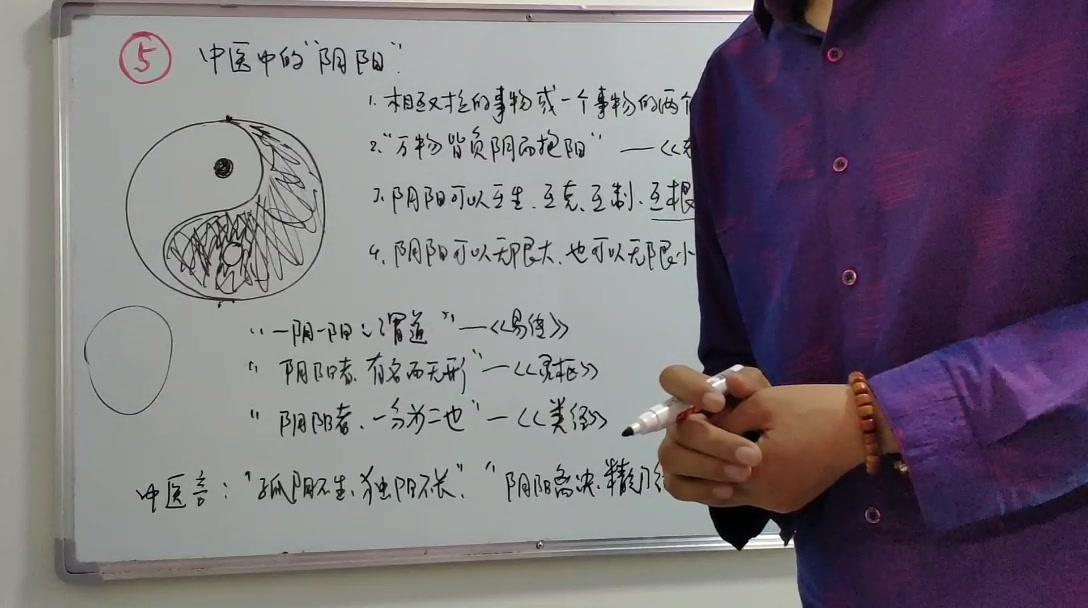 ⑤ 中医中的"阴阳".
1. 相反对立的事物或一个事物的两个
2. "万物皆负阴而抱阳" —《
3. 阴阳可以互生、互克、互制、互根
4. 阴阳可以无限大、也可以无限小
"一阴一阳之谓道" —《易经》
"阴阳者、有名而无形" —《灵枢》
"阴阳者、一分为二也" —《类经》
中医言："孤阴不生、独阳不长"、"阴阳离决、精